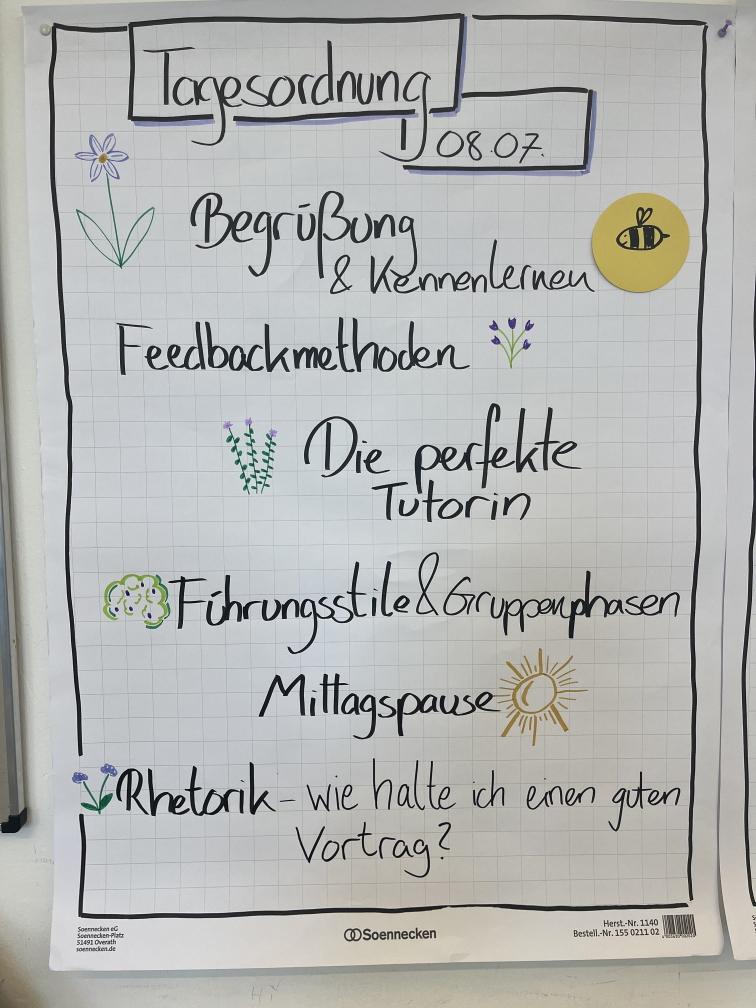 Tagesordnung
08.07.
Begrüßung
& Kennenlernen
Feedbackmethoden
Die perfekte
Tutorin
Führungsstile & Gruppenphasen
Mittagspause
Rhetorik - wie halte ich einen guten
Vortrag?
Soennecken eG
Soennecken-Platz
51491 Overath
soennecken.de
Soennecken
Herst.-Nr. 1140
Bestell.-Nr. 155 0211 02